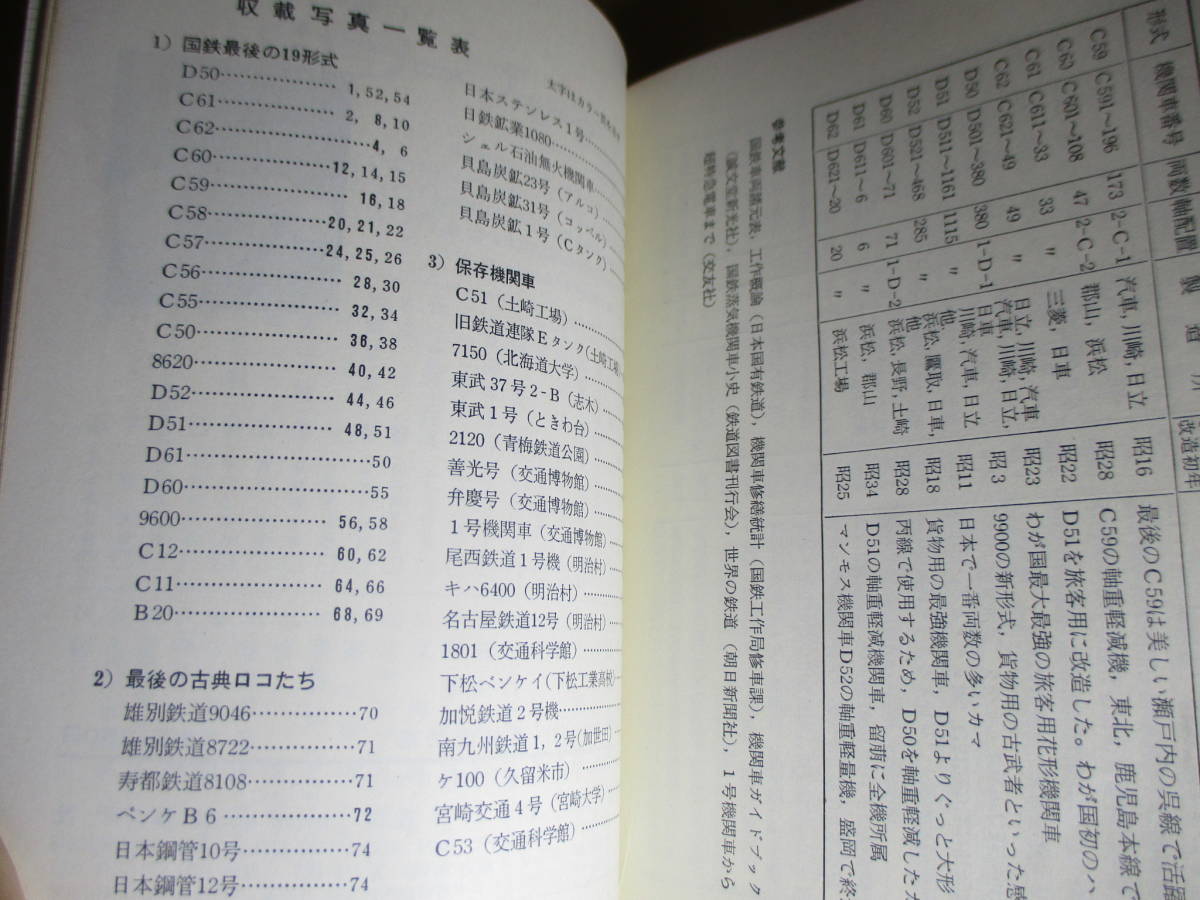 収載写真一覧表
太字はカラー
1) 国鉄最後の19形式
D50……………1,52,54
C61……………2, 8,10
C62……………4, 6
C60……………12,14,15
C59……………16,18
C58……………20,21,22
C57……………24,25,26
C56……………28,30
C55……………32,34
C50……………36,38
8620……………40,42
D52……………44,46
D51……………48,51
D61……………50
D60……………55
9600……………56,58
C12……………60,62
C11……………64,66
B20……………68,69
2) 最後の古典ロコたち
雄別鉄道9046……………70
雄別鉄道8722……………71
寿都鉄道8108……………71
ベンケB6……………72
日本鋼管10号……………74
日本鋼管12号……………74
日本ステンレス1号……
日鉄鉱業1080……
シェル石油無火機関車……
貝島炭鉱23号(アルコ)……
貝島炭鉱31号(コッペル)……
貝島炭鉱1号(Cタンク)……
3) 保存機関車
C51(土崎工場)……
旧鉄道連隊Eタンク(土崎工場
7150(北海道大学)……
東武37号2-B(志木)……
東武1号(ときわ台)……
2120(青梅鉄道公園)……
善光号(交通博物館)……
弁慶号(交通博物館)……
1号機関車(交通博物館)
尾西鉄道1号機(明治村)
キハ6400(明治村)……
名古屋鉄道12号(明治村)
1801(交通科学館)……
下松ベンケイ(下松工業高校)
加悦鉄道2号機……
南九州鉄道1,2号(加世田)
ケ100(久留米市)……
宮崎交通4号(宮崎大学)
C53(交通科学館)……
形式 機関車番号 両数 軸配置 製造所 改造初年
C59 C591~196 173 2-C-1 汽車,川崎,日立 昭16 最後のC59は美しい瀬戸内の呉線で活躍
C60 C601~108 47 2-C-2 郡山,浜松 昭28 C59の軸重軽減機,東北,鹿児島本線で
C61 C611~33 33 〃 三菱,日車 昭22 D51を旅客用に改造した。わが国初のハ
C62 C621~49 49 〃 日立,川崎,汽車 昭23 わが国最大最強の旅客用花形機関車
D50 D501~380 380 1-D-1 汽車,川崎,日立,日車 昭3 9900の新形式,貨物用の古武者といった感
D51 D511~1161 1115 〃 川崎,汽車,日立他 昭11 日本で一番両数の多いカマ
D52 D521~468 285 〃 浜松,鷹取,日車,他 昭18 貨物用の最強機関車,D51よりぐっと大形
D60 D601~71 71 1-D-2 浜松,長野,土崎 昭28 丙線で使用するため,D50を軸重軽減した
D61 D611~6 6 〃 浜松,郡山 昭34 D51の軸重軽減機関車,留萠に全機所属
D62 D621~20 20 〃 浜松工場 昭25 マンモス機関車D52の軸重軽量機,盛岡で終
参考文献
国鉄車両諸元表,工作概論(日本国有鉄道),機関車修繕統計(国鉄工作局修車課),機関車ガイドブック
(誠文堂新光社),国鉄蒸気機関車小史(鉄道図書刊行会),世界の鉄道(朝日新聞社),1号機関車から
超特急電車まで(交友社)